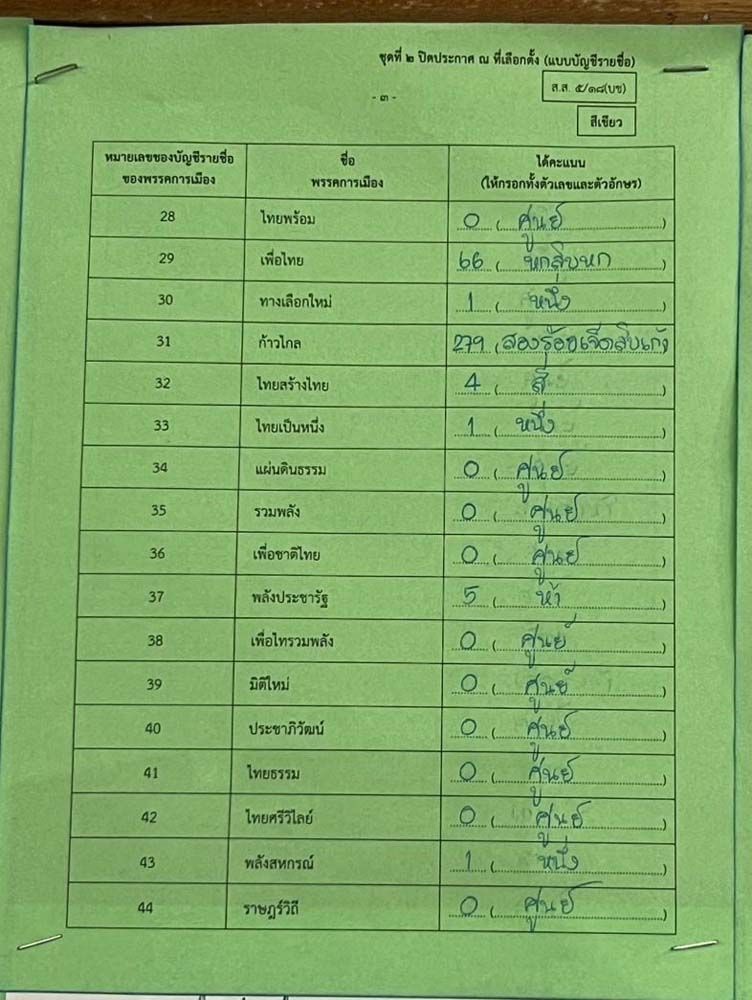 ชุดที่ ๒ ปิดประกาศ ณ ที่เลือกตั้ง (แบบบัญชีรายชื่อ)
- ๓ -
ส.ส. ๕/๑๘(บช)
สีเขียว
หมายเลขของบัญชีรายชื่อของพรรคการเมือง ชื่อพรรคการเมือง ได้คะแนน (ให้กรอกทั้งตัวเลขและตัวอักษร)
28 ไทยพร้อม 0 (ศูนย์)
29 เพื่อไทย 66 (หกสิบหก)
30 ทางเลือกใหม่ 1 (หนึ่ง)
31 ก้าวไกล 279 (สองร้อยเจ็ดสิบเก้า)
32 ไทยสร้างไทย 4 (สี่)
33 ไทยเป็นหนึ่ง 1 (หนึ่ง)
34 แผ่นดินธรรม 0 (ศูนย์)
35 รวมพลัง 0 (ศูนย์)
36 เพื่อชาติไทย 0 (ศูนย์)
37 พลังประชารัฐ 5 (ห้า)
38 เพื่อไทรวมพลัง 0 (ศูนย์)
39 มิติใหม่ 0 (ศูนย์)
40 ประชาภิวัฒน์ 0 (ศูนย์)
41 ไทยธรรม 0 (ศูนย์)
42 ไทยศรีวิไลย์ 0 (ศูนย์)
43 พลังสหกรณ์ 1 (หนึ่ง)
44 ราษฎร์วิถี 0 (ศูนย์)